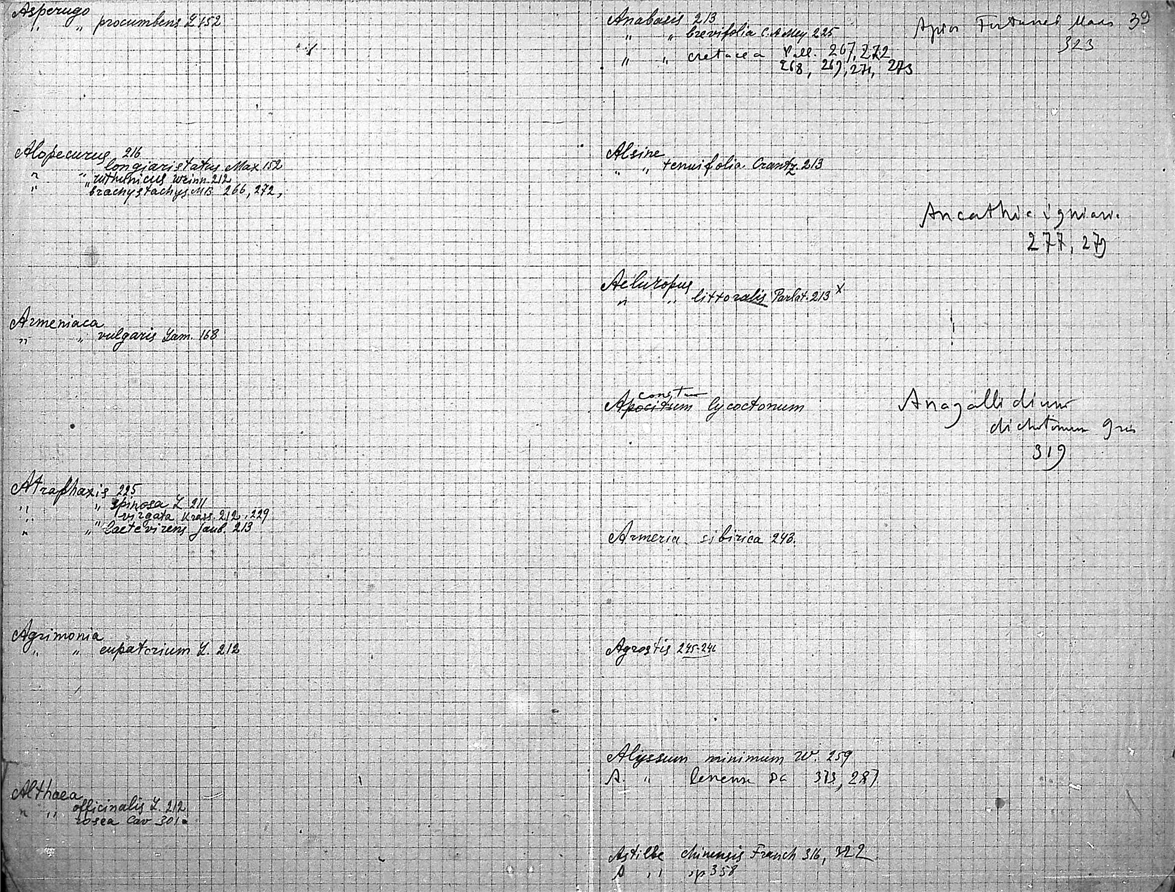 Asperugo
" " procumbens L 152
Alopecurus 216
" " longiaristatus Max 152
" " ruthenicus Weinn. 212
" " brachystachys MB 266, 272,
Armeniaca
" " vulgaris Lam. 168
Atraphaxis 225
" " spinosa L 211
" " virgata Krass. 212, 229
" " laetevirens Jaub. 213
Agrimonia
" " eupatorium L. 212
Althaea
" " officinalis L. 212
rosea Cav 301
Anabasis 213
" " brevifolia C.A.Mey 225
" " cretacea Pall. 267, 272
268, 269, 271, 273
Alsine
" " tenuifolia Crantz. 213
Aeluropus
" " littoralis Parlat. 213 x
Aconitum lycoctonum
Armeria sibirica 243.
Agrostis 245-246
Alyssum minimum W. 259
A. " lenense DC 313, 287
Astilbe chinensis Franch 316, 322
A " " sp 358
39
Apios Fortunei Maxs
323
Ancathia igniari.
277, 279
Anagallidium
dichotomum Gris
319